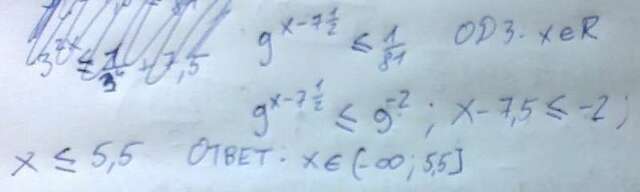 9^{x-7\frac{1}{2}} ≤ \frac{1}{81} ОДЗ. x∈R
9^{x-7\frac{1}{2}} ≤ 9^{-2}; x-7,5 ≤ -2;
x ≤ 5,5 ОТВЕТ. x∈(-∞; 5,5]